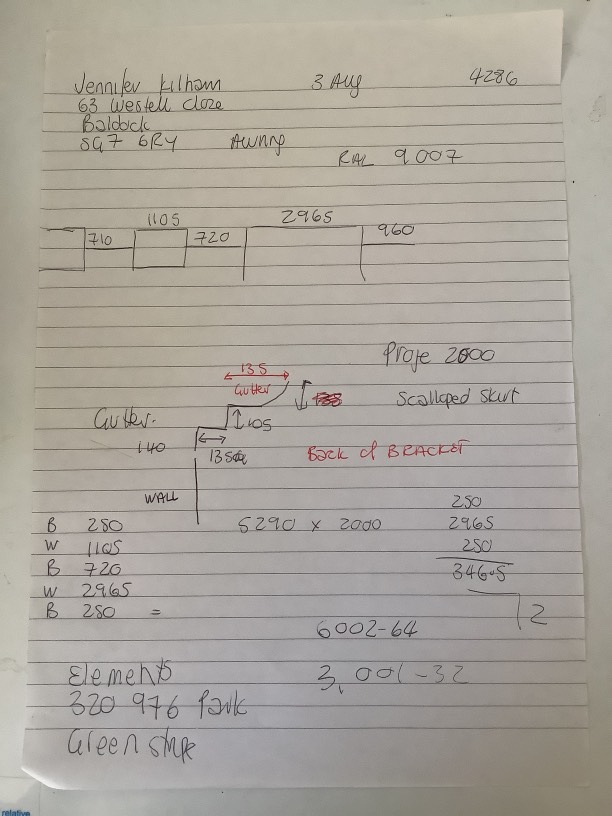 Jennifer Kilham 3 Aug 4286
63 Westell Close
Baldock
SG7 6RY Awning
RAL 9007
1105 2965
710 720 960
Proje 2000
135
Gutter
Scalloped Skirt
Gutter. 105
140 135
Back of BRACKET
WALL 250
B 250 5290 x 2000 2965
W 1105 250
B 720 3465
W 2965
B 250 = 2
6002-64
Elements 3,001-32
320 976 Park
Green stripe